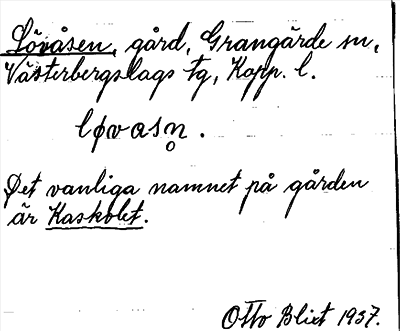 Lövåsen, gård, Grangärde sn,
Västerbergslags fg, Kopp. l.
løvasn̥.
Det vanliga namnet på gården
är Kaskolet.
Otto Blixt 1937.